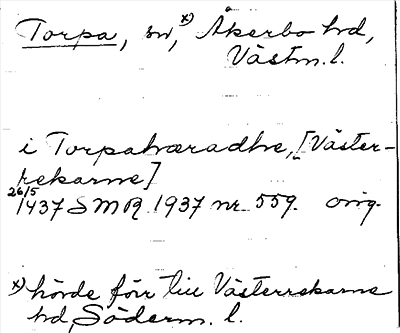 Torpa, sn, x) Åkerbo hd,
Västm. l.
i Torpahæradhe, [Väster-
rekarne]
26/5
1437 SMR 1937 nr 559. orig.
x) hörde förr till Västerrekarne
hd, Söderm. l.